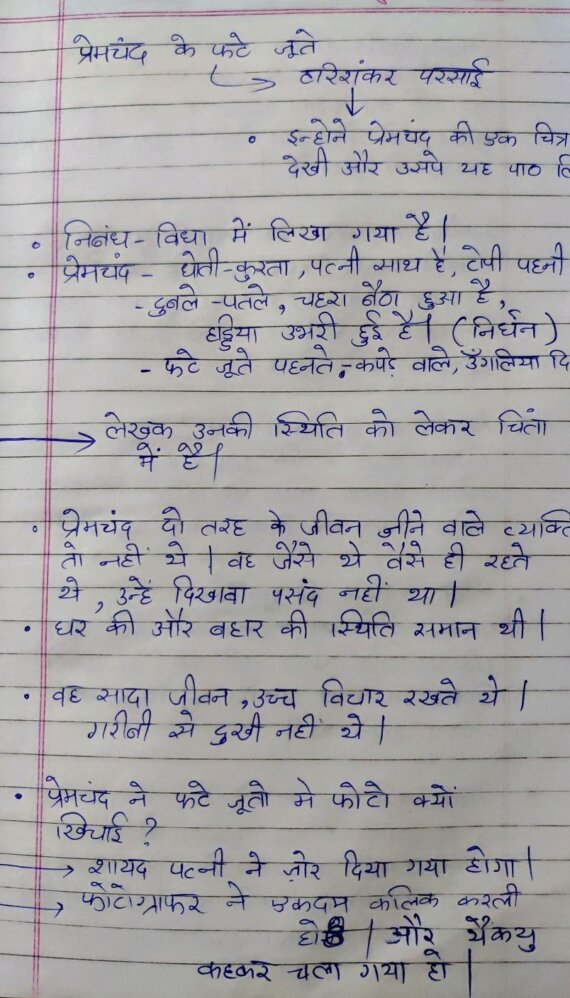 प्रेमचंद के फटे जूते
हरिशंकर परसाई
• इन्होने प्रेमचंद की एक चित्र
देखी और उसपे यह पाठ लि
• निबंध-विधा में लिखा गया है |
• प्रेमचंद - धोती-कुरता, पत्नी साथ है, टोपी पहनी
- दुबले-पतले, चहरा बैठा हुआ है,
हड्डिया उभरी हुई है | (निर्धन)
- फटे जूते पहनते, - कपड़े वाले, उँगलिया दि
लेखक उनकी स्थिति को लेकर चिंता
में है |
• प्रेमचंद दो तरह के जीवन जीने वाले व्यक्ति
तो नहीं थे | वह जैसे थे वैसे ही रहते
थे, उन्हें दिखावा पसंद नहीं था |
• घर की और बहार की स्थिति समान थी |
• वह सादा जीवन, उच्च विचार रखते थे |
गरीबी से दुखी नहीं थे |
• प्रेमचंद ने फटे जूतो मे फोटो क्यों
खिचाई ?
→ शायद पत्नी ने ज़ोर दिया गया होगा |
→ फोटोग्राफर ने एकदम कलिक करली
हो | और थैंकयु
कहकर चला गया हो |